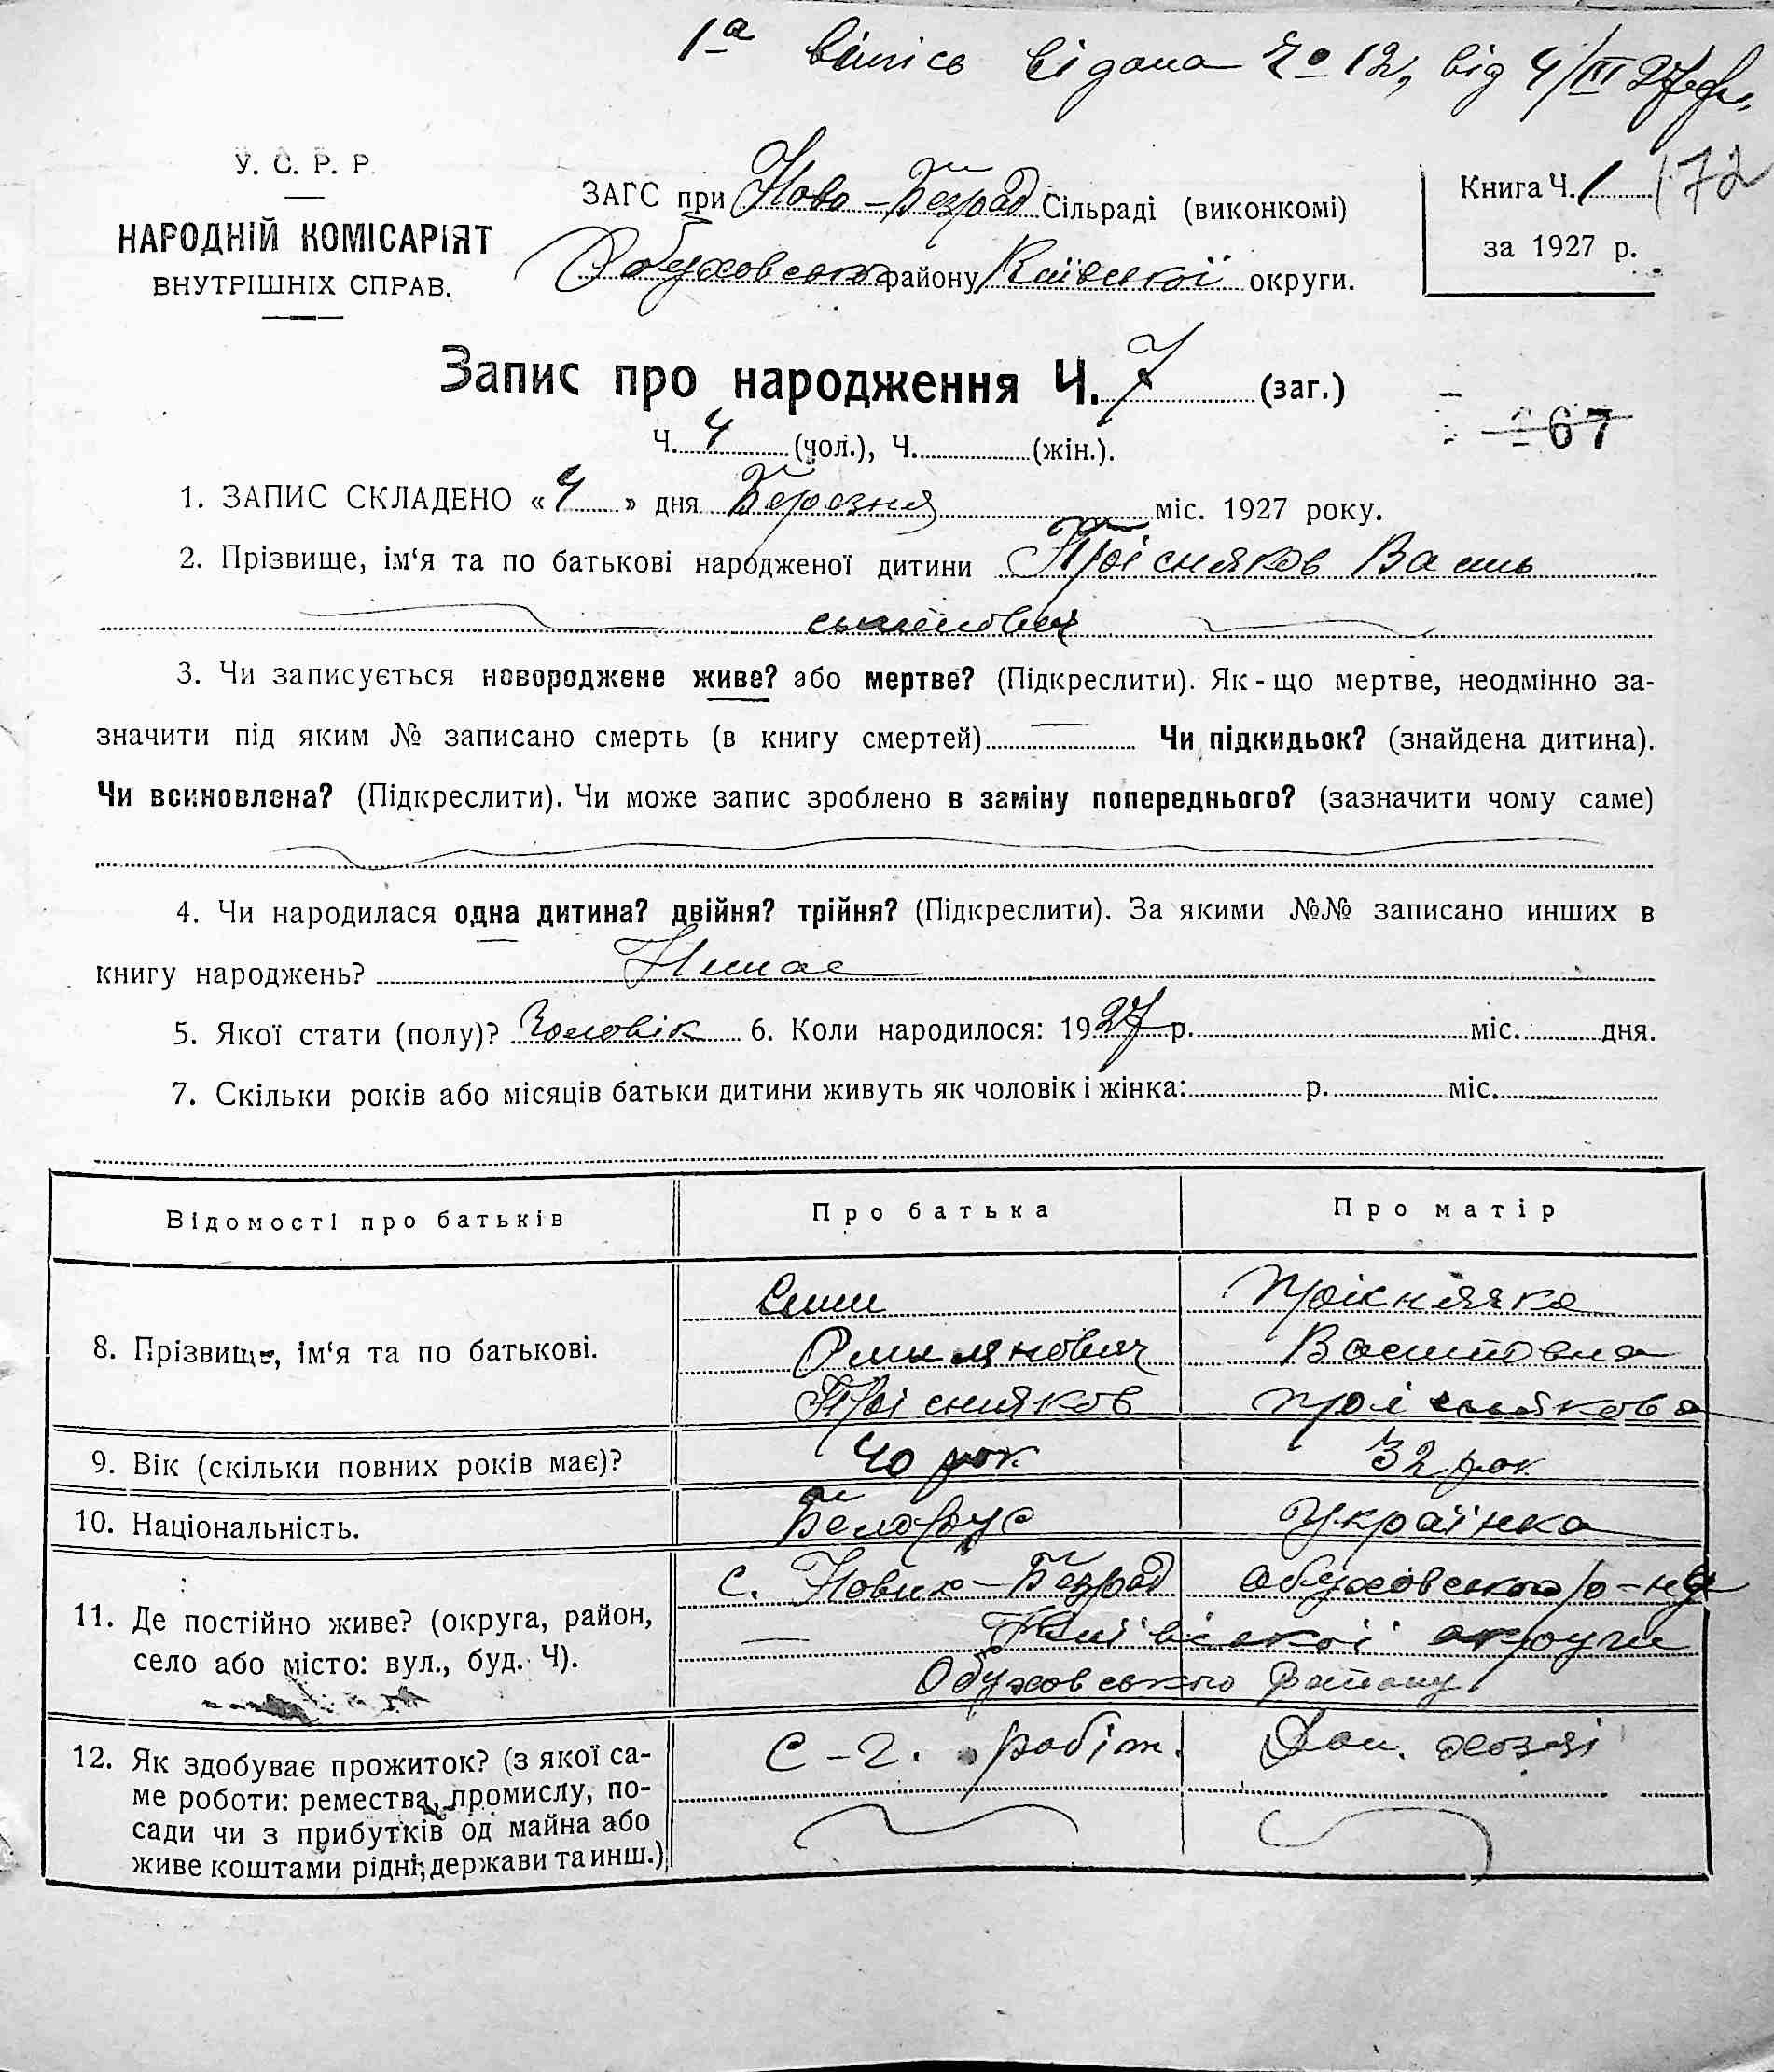 1а випісь видана № 12, від 4/III 27 р.
У. С. Р. Р.
НАРОДНІЙ КОМІСАРІЯТ
ВНУТРІШНІХ СПРАВ.
ЗАГС при Ново-Безрад Сільраді (виконкомі)
Обуховсько району Київської округи.
Книга Ч. 1 172
за 1927 р.
Запис про народження Ч. 7 (заг.)
Ч. 4 (чол.), Ч. (жін.).
167
1. ЗАПИС СКЛАДЕНО «4» дня Березня міс. 1927 року.
2. Прізвище, ім‘я та по батькові народженої дитини Прісняков Василь
3. Чи записується новороджене живе? або мертве? (Підкреслити). Як-що мертве, неодмінно за-
значити під яким № записано смерть (в книгу смертей) Чи підкидьок? (знайдена дитина).
Чи всиновлена? (Підкреслити). Чи може запис зроблено в заміну попереднього? (зазначити чому саме)
4. Чи народилася одна дитина? двійня? трійня? (Підкреслити). За якими №№ записано инших в
книгу народжень? Немає
5. Якої стати (полу)? Чоловік 6. Коли народилося: 1927 р. міс. дня.
7. Скільки років або місяців батьки дитини живуть як чоловік і жінка: р. міс.
Відомості про батьків Про батька Про матір
8. Прізвище, ім‘я та по батькові.
Омилянович
Прісняков Пріснякова
9. Вік (скільки повних років має)? 40 рок 32 рок
10. Національність. Белорус Українка
11. Де постійно живе? (округа, район,
село або місто: вул., буд. Ч).
с. Нових-Безрад Обуховського р-ну
Київської округи
Обуховського Району
12. Як здобуває прожиток? (з якої са-
ме роботи: ремества, промислу, по-
сади чи з прибутків од майна або
живе коштами рідні, держави та инш.)
С-г. робіт. Дом. хозяі